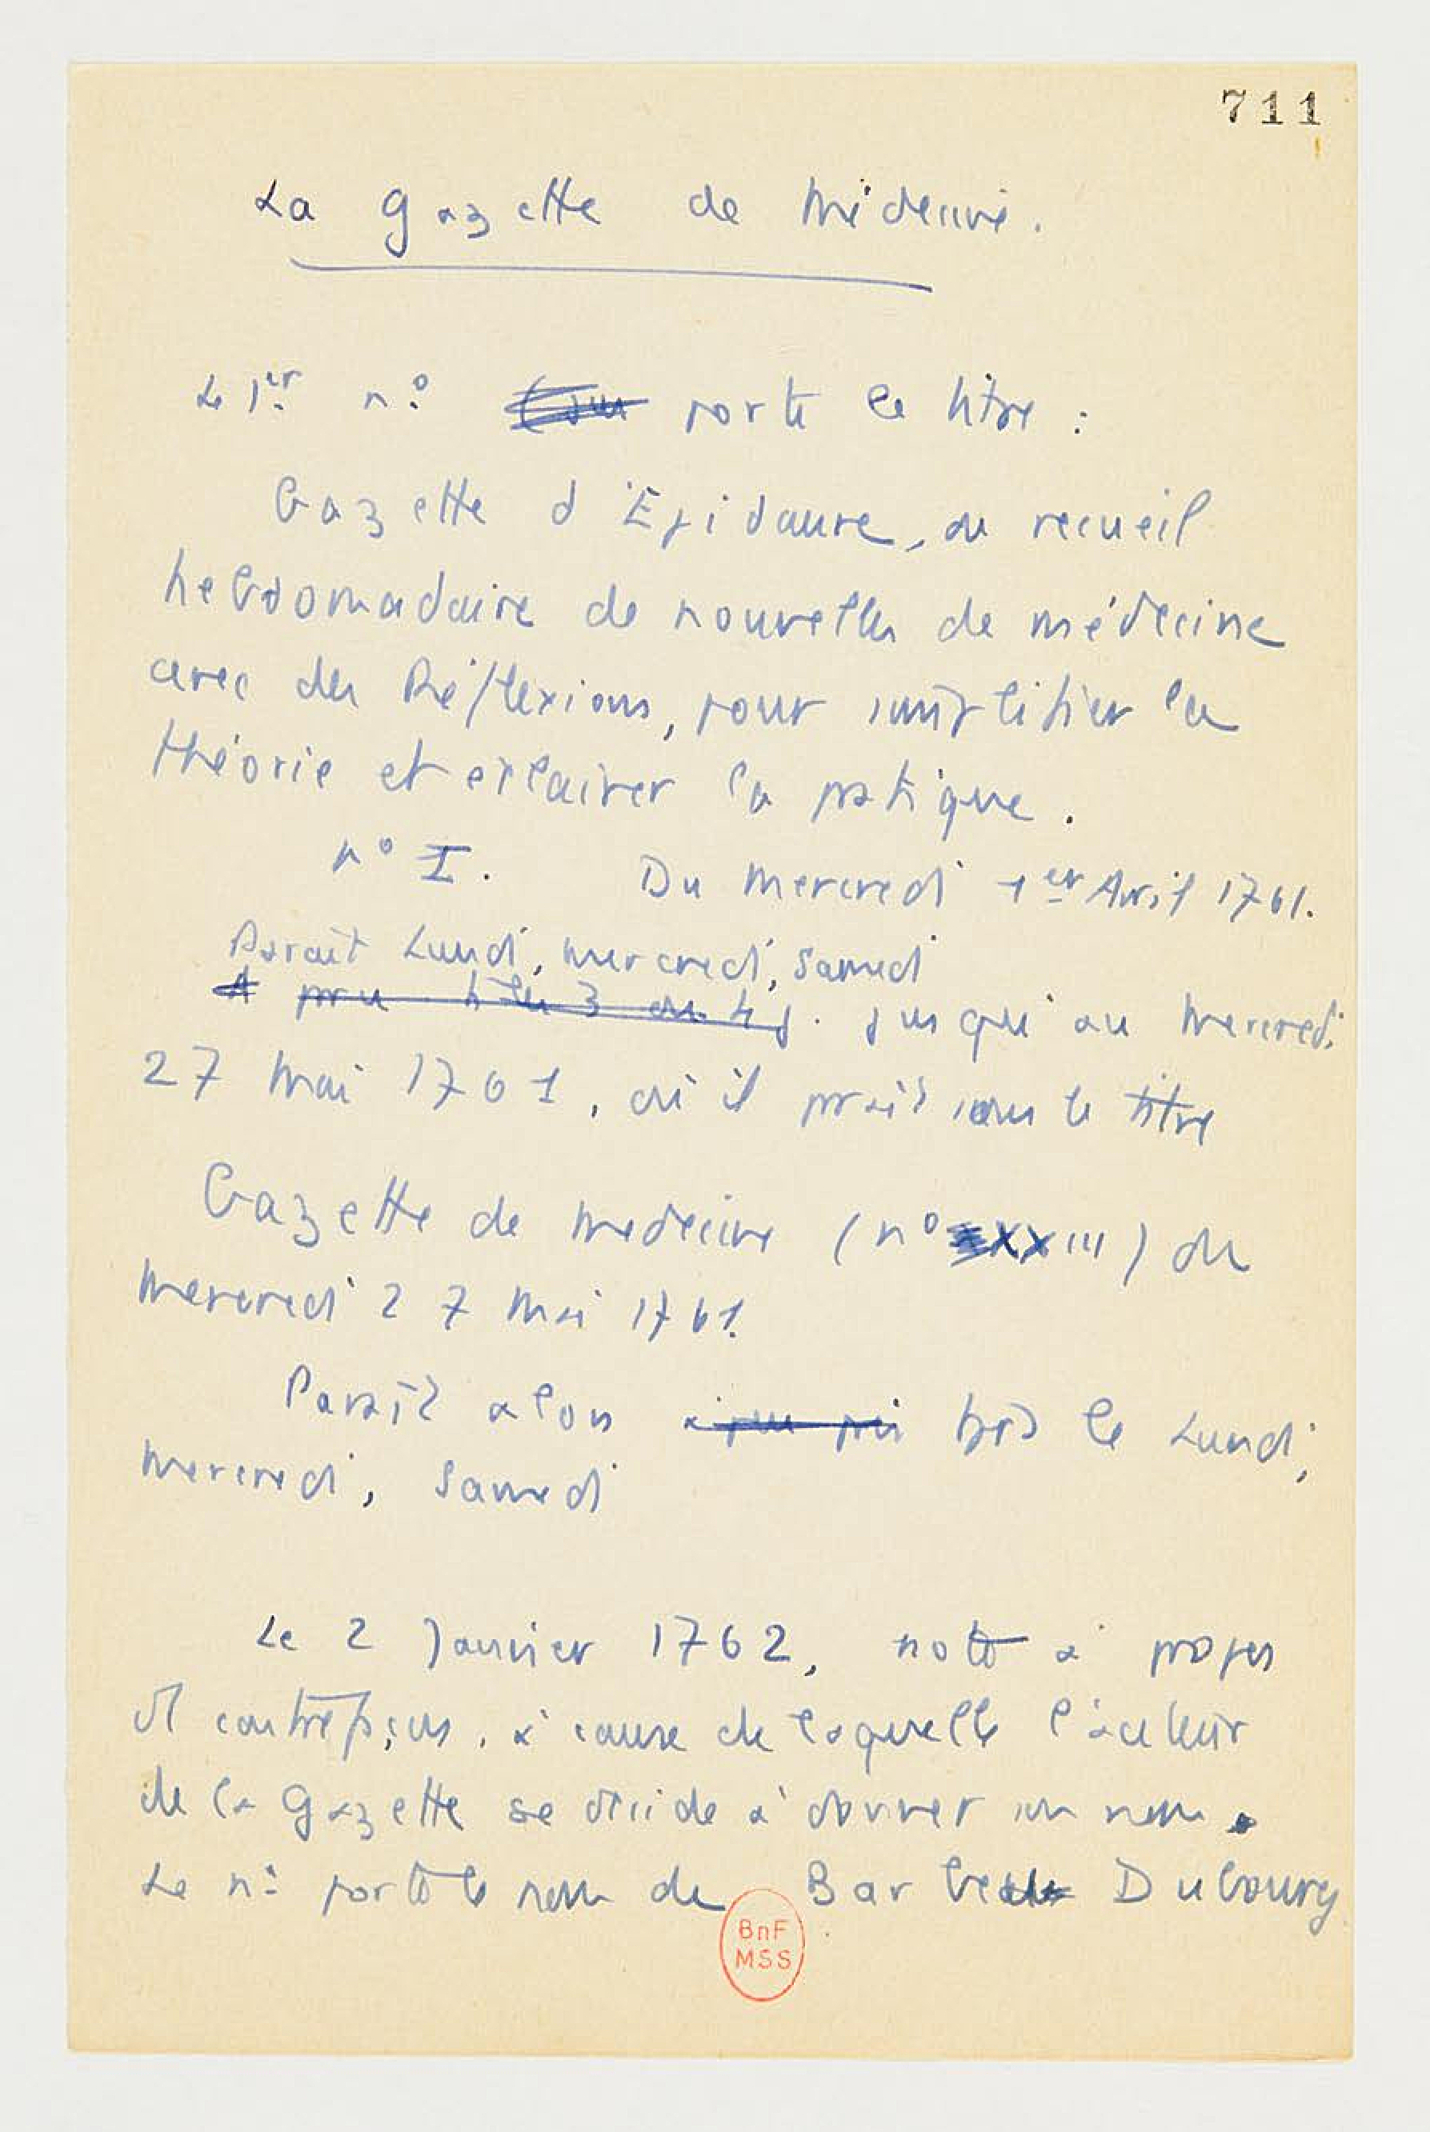 711
La Gazette de Médecine.
Le 1er n° porte le titre :
Gazette d'Épidaure, ou recueil
hebdomadaire de nouvelles de médecine
avec des Réflexions, pour simplifier la
théorie et éclairer la pratique.
n° I. Du Mercredi 1er Avril 1761.
Paraît Lundi, mercredi, Samedi
jusqu'au Mercredi
27 Mai 1761, où il paraît sous le titre
Gazette de Médecine (n° XXIII) du
Mercredi 27 Mai 1761.
Paraît alors le Lundi,
Mercredi, Samedi
Le 2 Janvier 1762, note à propos
d'1 contrefaçon, à cause de laquelle l'auteur
de la Gazette se décide à donner son nom.
Le n° porte le nom de Barbeu Dubourg
BnF
MSS